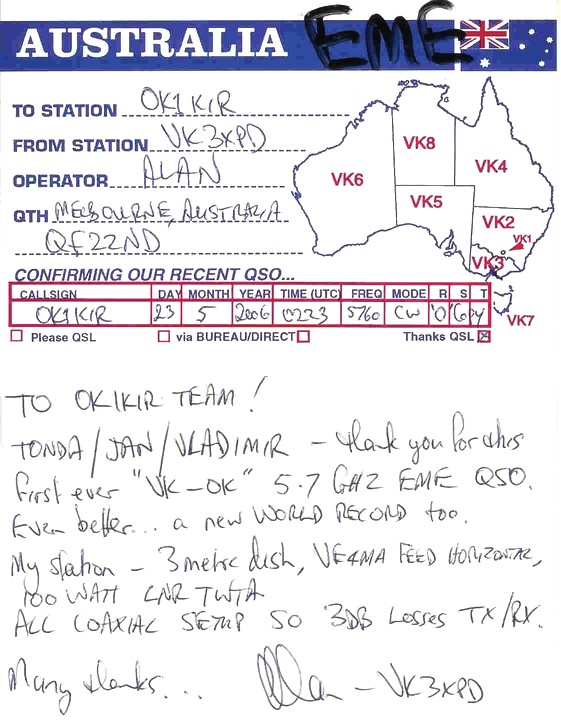 AUSTRALIA EME
TO STATION OK1KIR
FROM STATION VK3XPD
OPERATOR ALAN
QTH MELBOURNE, AUSTRALIA
QF22ND
VK8
VK6
VK4
VK5
VK2
VK1
VK3
VK7
CONFIRMING OUR RECENT QSO...
CALLSIGN DAY MONTH YEAR TIME (UTC) FREQ MODE R S T
OK1KIR 23 5 2006 0223 5760 CW "O"
Please QSL via BUREAU/DIRECT Thanks QSL
TO OK1KIR TEAM!
TONDA/JAN/VLADIMIR - thank you for this
first ever "VK-OK" 5.7 GHZ EME QSO.
Even better... a new WORLD RECORD too.
My station - 3 metre dish, VE4MA FEED HORIZONTAL,
100 WATT LNR TWTA
ALL COAXIAL SETUP SO 3DB Losses TX/RX.
Many thanks... Alan - VK3XPD